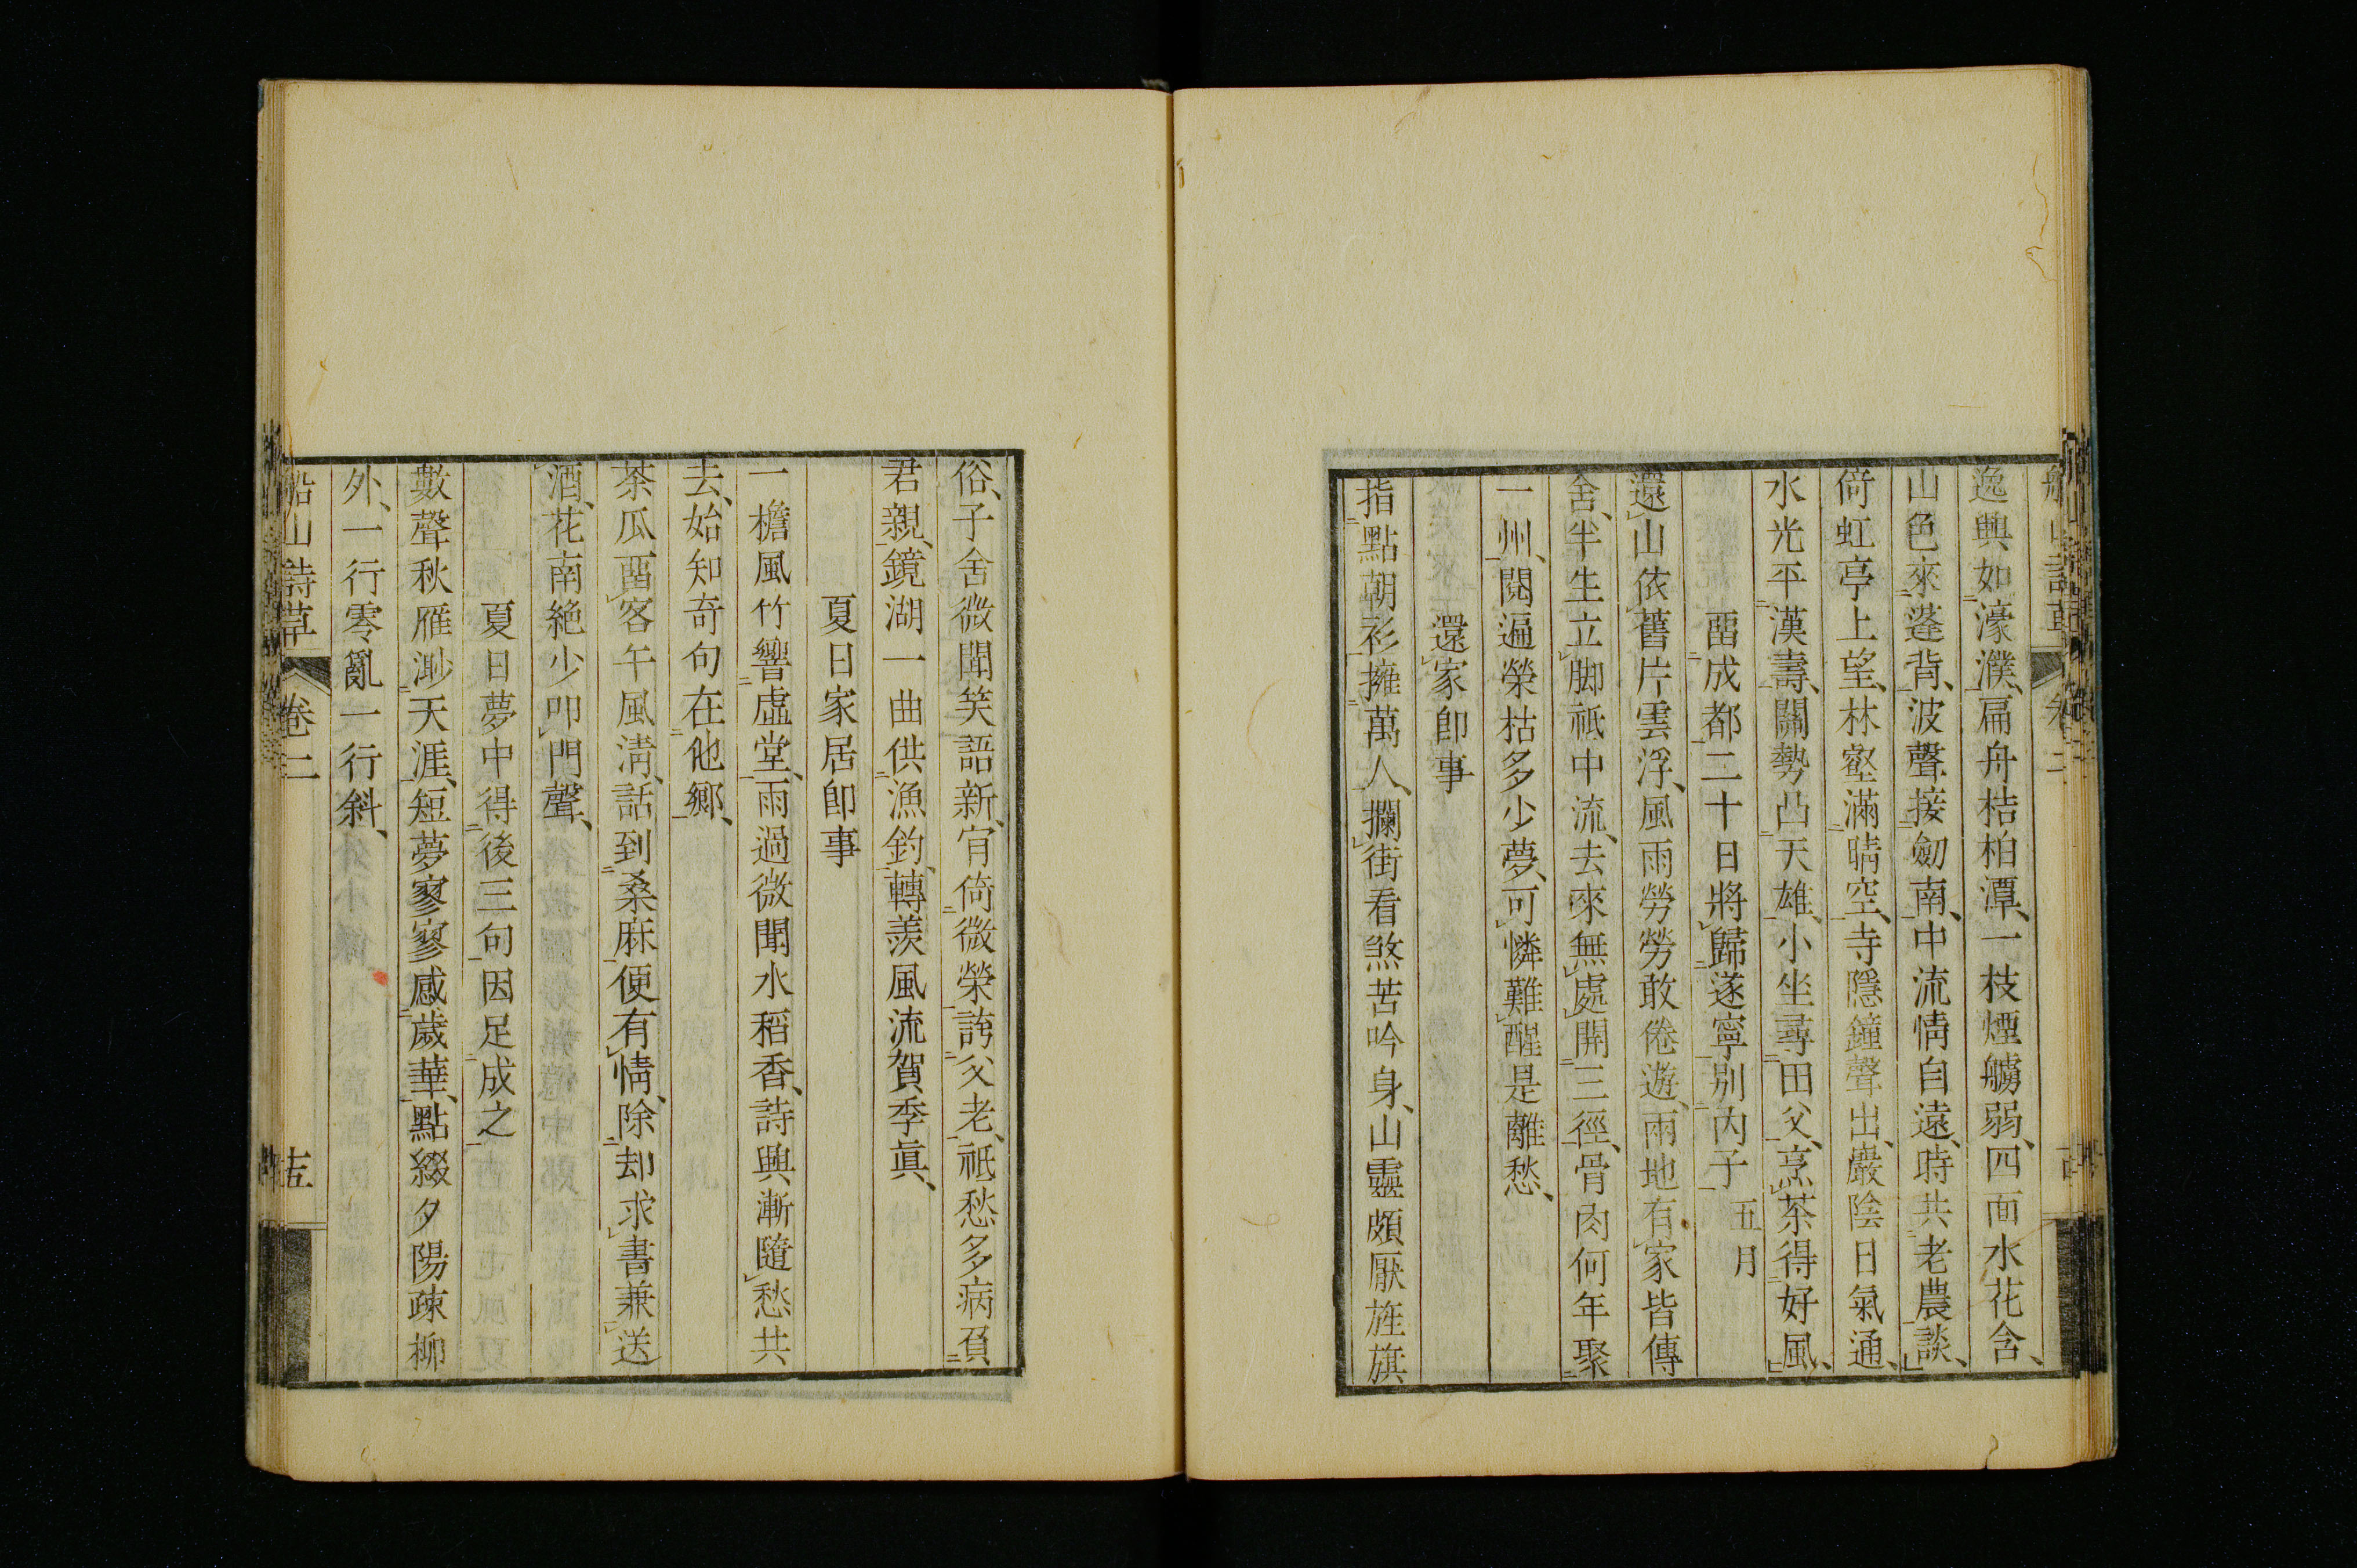 逸興如濠濮、扁舟桔柏潭、一枝煙艣弱、四面水花含、
山色來蓬背、波聲接劒南、中流情自遠、時共老農談、
倚虹亭上望、林壑滿晴空、寺隱鐘聲出、嚴陰日氣通、
水光平漢壽、關勢凸天雄、小坐尋田父、烹茶得好風、
畱成都二十日將歸遂寧別內子 五月
還山依舊片雲浮、風雨勞勞敢倦遊、兩地有家皆傳
舍、半生立脚祗中流、去來無處開三徑、骨肉何年聚
一州、閱遍榮枯多少夢、可憐難醒是離愁、
還家卽事
指點朝衫擁萬人、攔街看煞苦吟身、山靈頗厭旌旗
俗、子舍微聞笑語新、宵倚微榮誇父老、祗愁多病負
君親、鏡湖一曲供漁釣、轉羨風流賀季眞、
夏日家居卽事
一檐風竹響虛堂、雨過微聞水稻香、詩興漸隨愁共
去、始知奇句在他鄉、
茶瓜畱客午風淸、話到桑麻便有情、除却求書兼送
酒、花南絶少叩門聲、
夏日夢中得後三句因足成之
數聲秋雁渺天涯、短夢寥寥感歲華、點綴夕陽疎柳
外、一行零亂一行斜、
船山詩草 卷二 十五